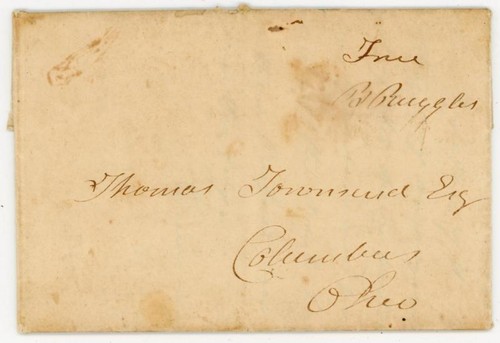 Free
B Ruggles
Thomas Townsend Esq
Columbus
Ohio